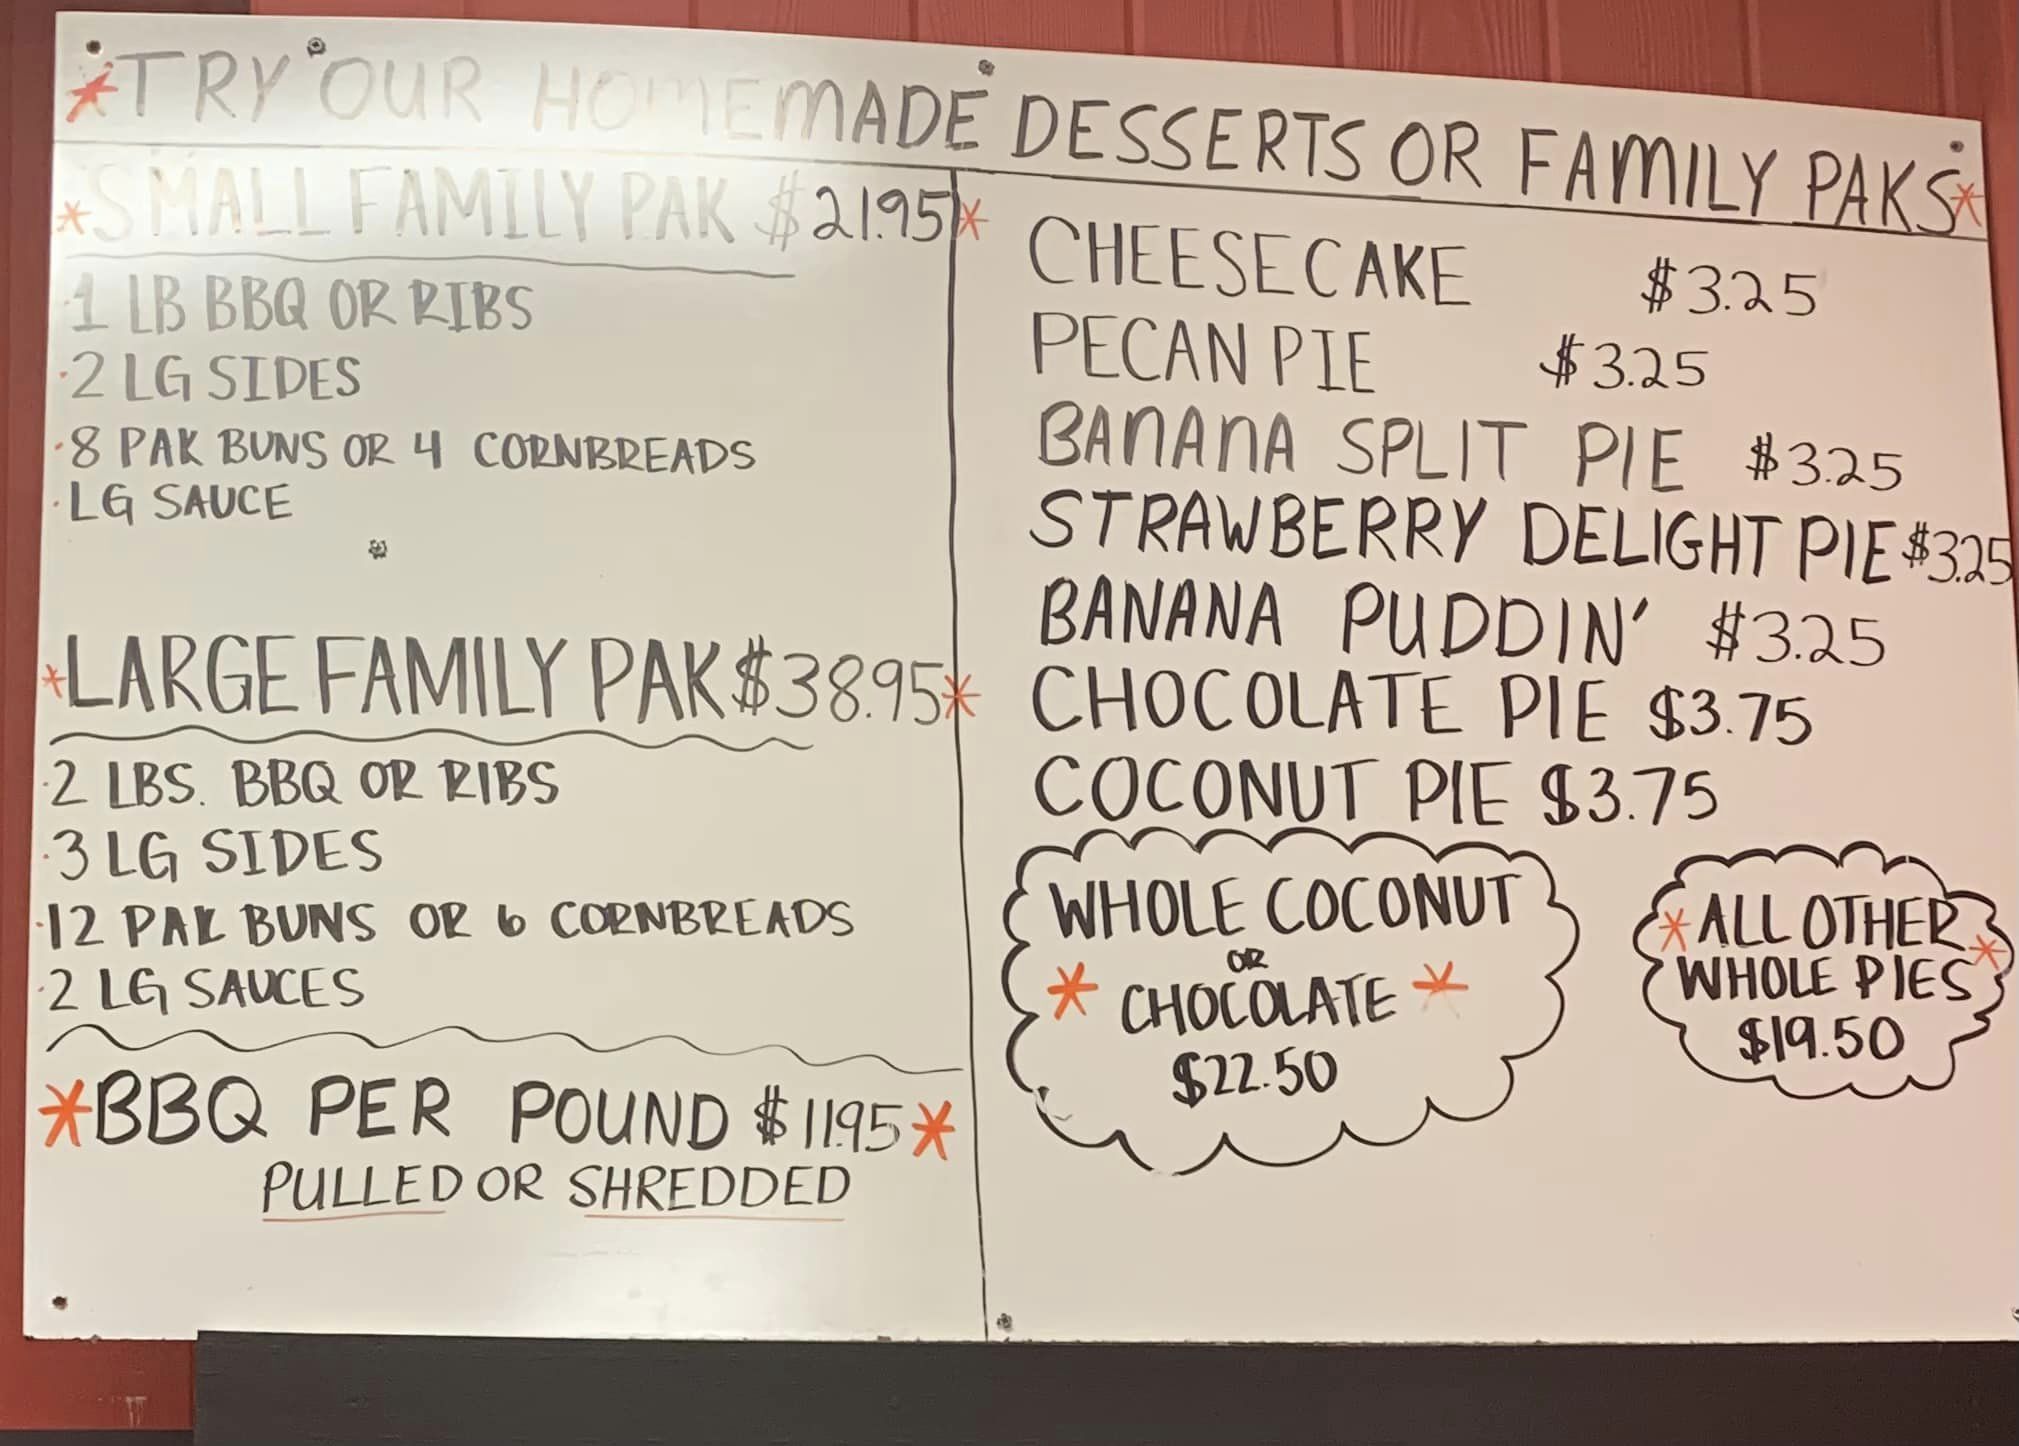 TRY OUR HOMEMADE DESSERTS OR FAMILY PAKS
SMALL FAMILY PAK $21.95
·1 LB BBQ OR RIBS
·2 LG SIDES
·8 PAK BUNS OR 4 CORNBREADS
·LG SAUCE
LARGE FAMILY PAK $38.95
·2 LBS. BBQ OR RIBS
·3 LG SIDES
·12 PAK BUNS OR 6 CORNBREADS
·2 LG SAUCES
BBQ PER POUND $11.95
PULLED OR SHREDDED
CHEESECAKE $3.25
PECAN PIE $3.25
BANANA SPLIT PIE $3.25
STRAWBERRY DELIGHT PIE $3.25
BANANA PUDDIN' $3.25
CHOCOLATE PIE $3.75
COCONUT PIE $3.75
WHOLE COCONUT
OR
CHOCOLATE
$22.50
ALL OTHER
WHOLE PIES
$19.50